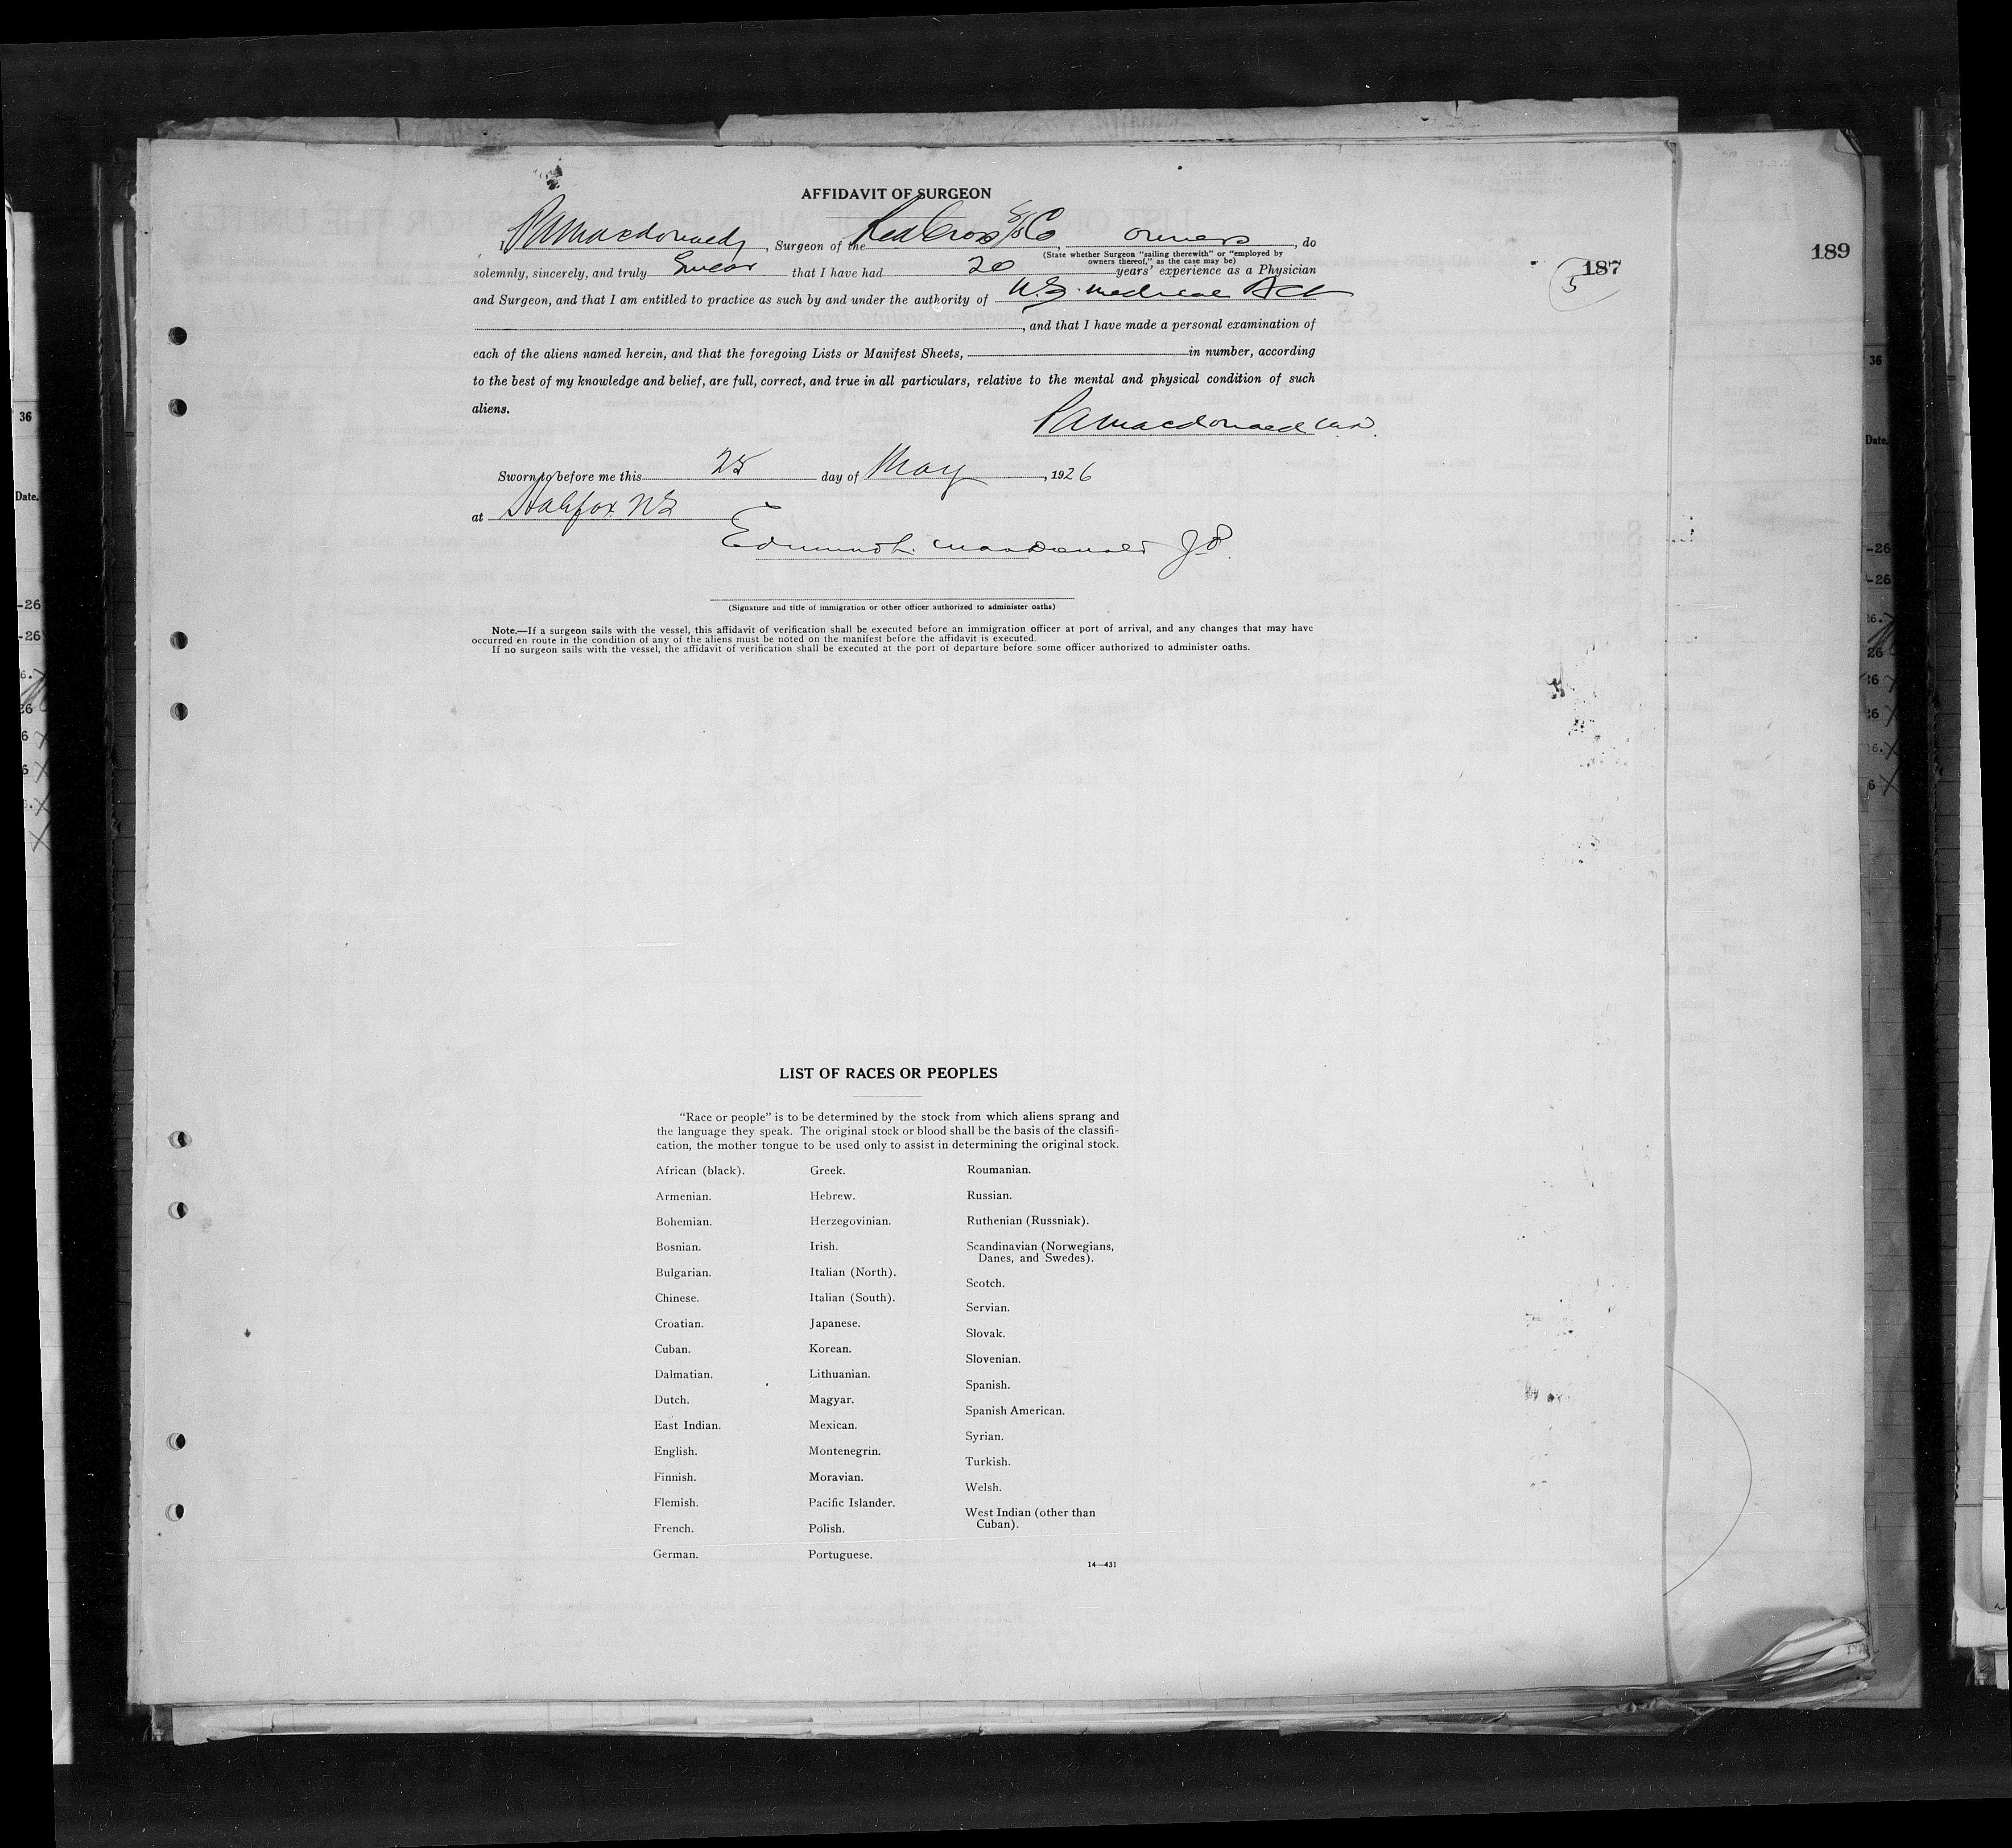 AFFIDAVIT OF SURGEON
I, PAMacdonald, Surgeon of the Red Cross S/S Co, owners, do
(State whether Surgeon "sailing therewith" or "employed by
owners thereof," as the case may be)
solemnly, sincerely, and truly Swear that I have had 20 years' experience as a Physician
and Surgeon, and that I am entitled to practice as such by and under the authority of N.S. Medical Act
, and that I have made a personal examination of
each of the aliens named herein, and that the foregoing Lists or Manifest Sheets, in number, according
to the best of my knowledge and belief, are full, correct, and true in all particulars, relative to the mental and physical condition of such
aliens.
PAMacdonald M.D.
Sworn to before me this 25 day of May, 1926
at Halifax NS
Edmund L. MacDonald JP.
(Signature and title of immigration or other officer authorized to administer oaths)
Note.—If a surgeon sails with the vessel, this affidavit of verification shall be executed before an immigration officer at port of arrival, and any changes that may have
occurred en route in the condition of any of the aliens must be noted on the manifest before the affidavit is executed.
If no surgeon sails with the vessel, the affidavit of verification shall be executed at the port of departure before some officer authorized to administer oaths.
187
5
189
LIST OF RACES OR PEOPLES
"Race or people" is to be determined by the stock from which aliens sprang and
the language they speak. The original stock or blood shall be the basis of the classifi-
cation, the mother tongue to be used only to assist in determining the original stock.
African (black).
Armenian.
Bohemian.
Bosnian.
Bulgarian.
Chinese.
Croatian.
Cuban.
Dalmatian.
Dutch.
East Indian.
English.
Finnish.
Flemish.
French.
German.
Greek.
Hebrew.
Herzegovinian.
Irish.
Italian (North).
Italian (South).
Japanese.
Korean.
Lithuanian.
Magyar.
Mexican.
Montenegrin.
Moravian.
Pacific Islander.
Polish.
Portuguese.
Roumanian.
Russian.
Ruthenian (Russniak).
Scandinavian (Norwegians,
Danes, and Swedes).
Scotch.
Servian.
Slovak.
Slovenian.
Spanish.
Spanish American.
Syrian.
Turkish.
Welsh.
West Indian (other than
Cuban).
14—431
36
Date.
-26
-26
36
Date.
-26
-26